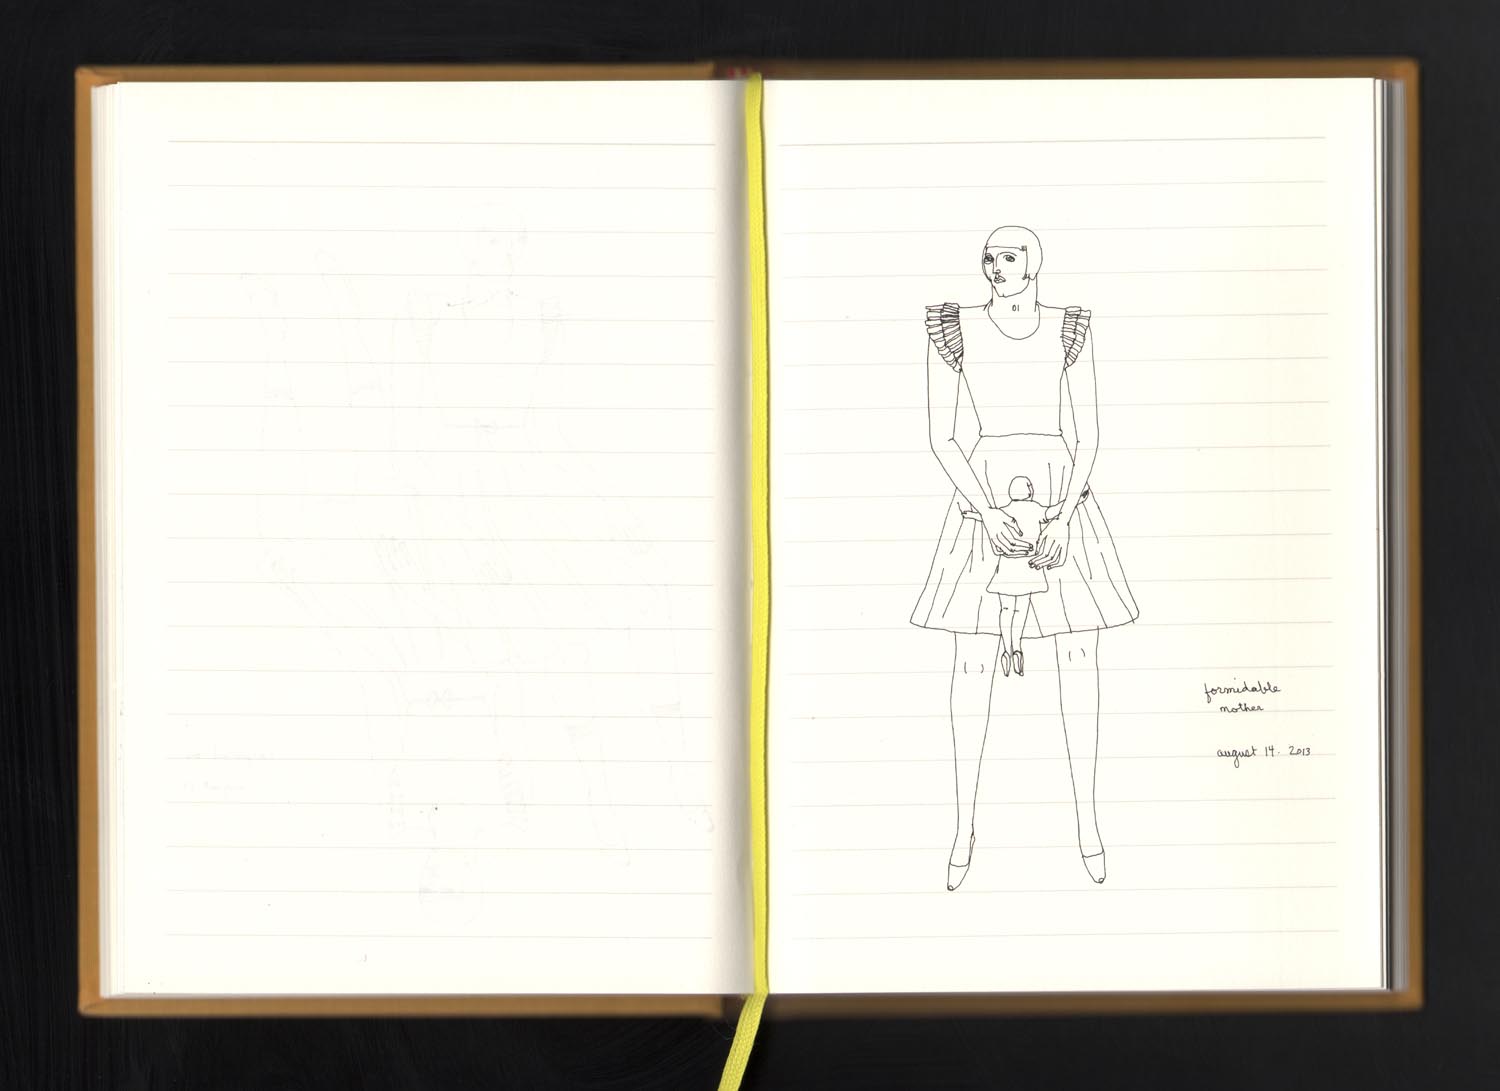 formidable
mother
august 14. 2013